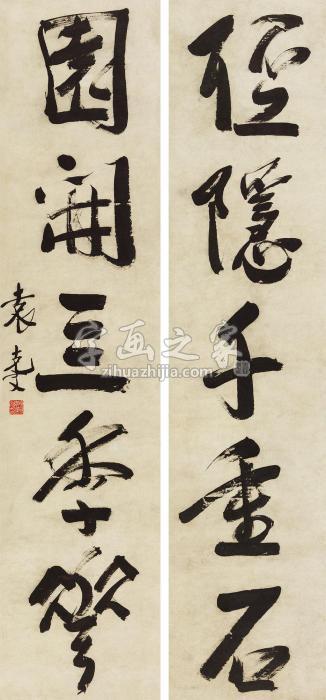 徑隱千重石
園開三季華
袁克文
字画之家
zihuazhijia.com